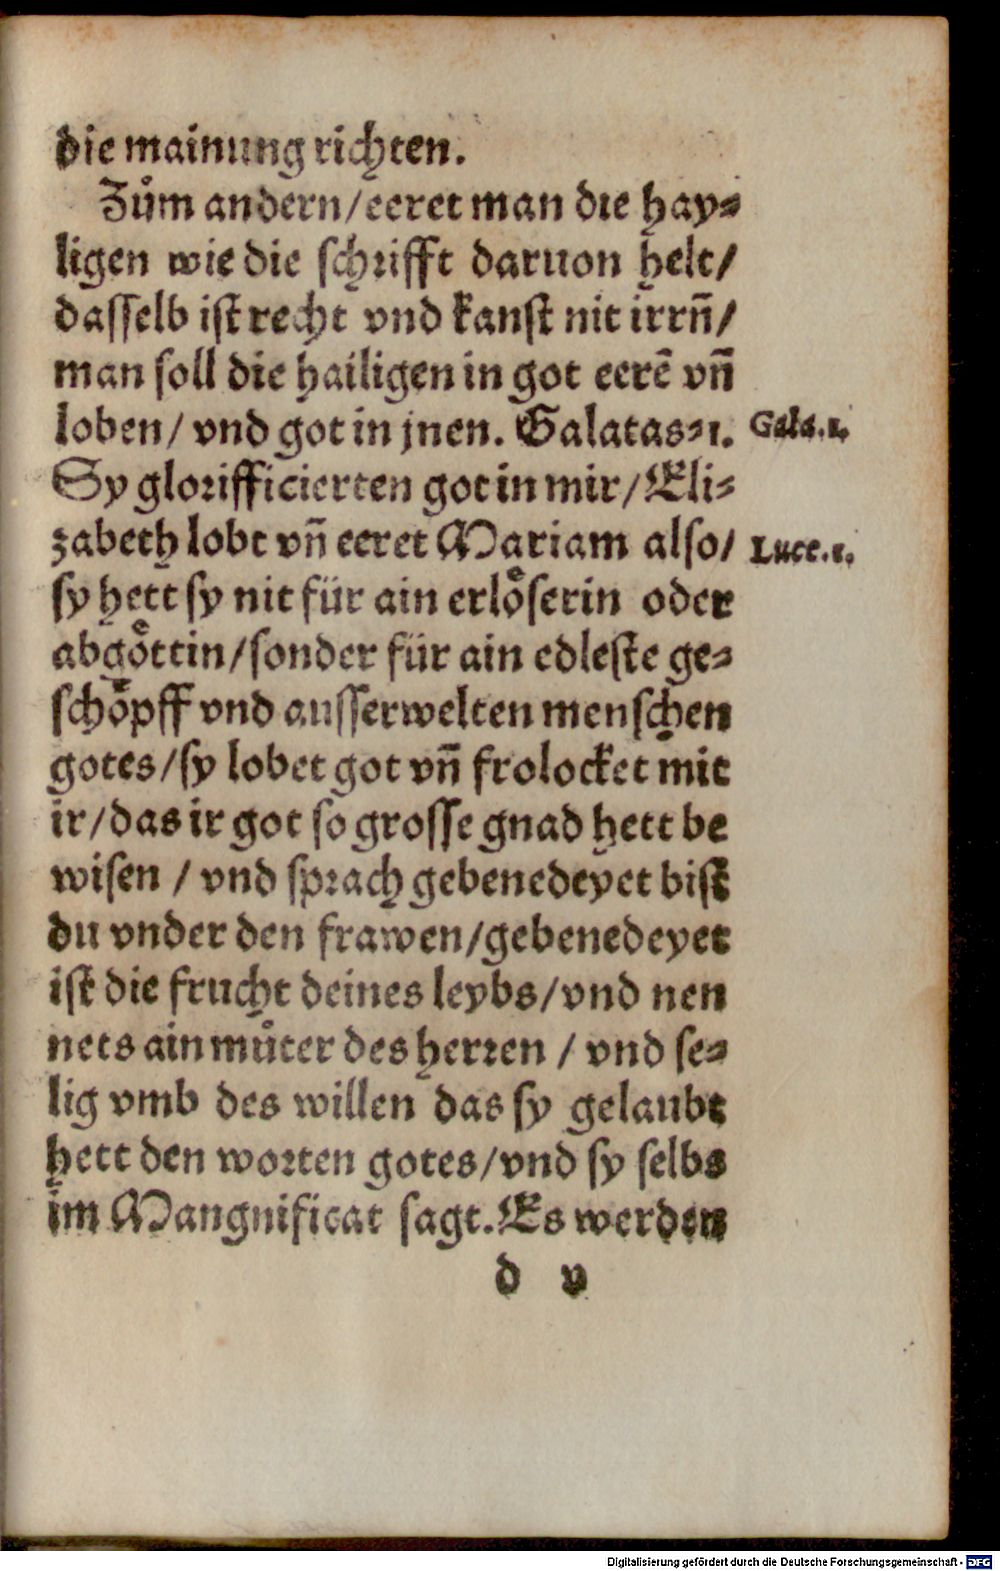 die mainung richten.
Zuͦm andern/eeret man die hay⸗
ligen wie die schrifft daruon helt/
dasselb ist recht vnd kanst nit irrn̄/
man soll die hailigen in got eerē vn̄
loben/ vnd got in jnen. Galatas⸗1.
Gala.1.
Sy glorifficierten got in mir/Eli⸗
zabeth lobt vn̄ eeret Mariam also/
Luce.1.
sy hett sy nit für ain erloͤserin oder
abgoͤttin/sonder für ain edleste ge⸗
schoͤpff vnd ausserwelten menschen
gotes/sy lobet got vn̄ frolocket mit
ir/das ir got so grosse gnad hett be
wisen / vnd sprach gebenedeyet bist
du vnder den frawen/gebenedeyet
ist die frucht deines leybs/vnd nen
nets ain muͦter des herren / vnd se⸗
lig vmb des willen das sy gelaubt
hett den worten gotes/vnd sy selbs
im Mangnificat sagt.Es werden
d v
Digitalisierung gefördert durch die Deutsche Forschungsgemeinschaft - DFG